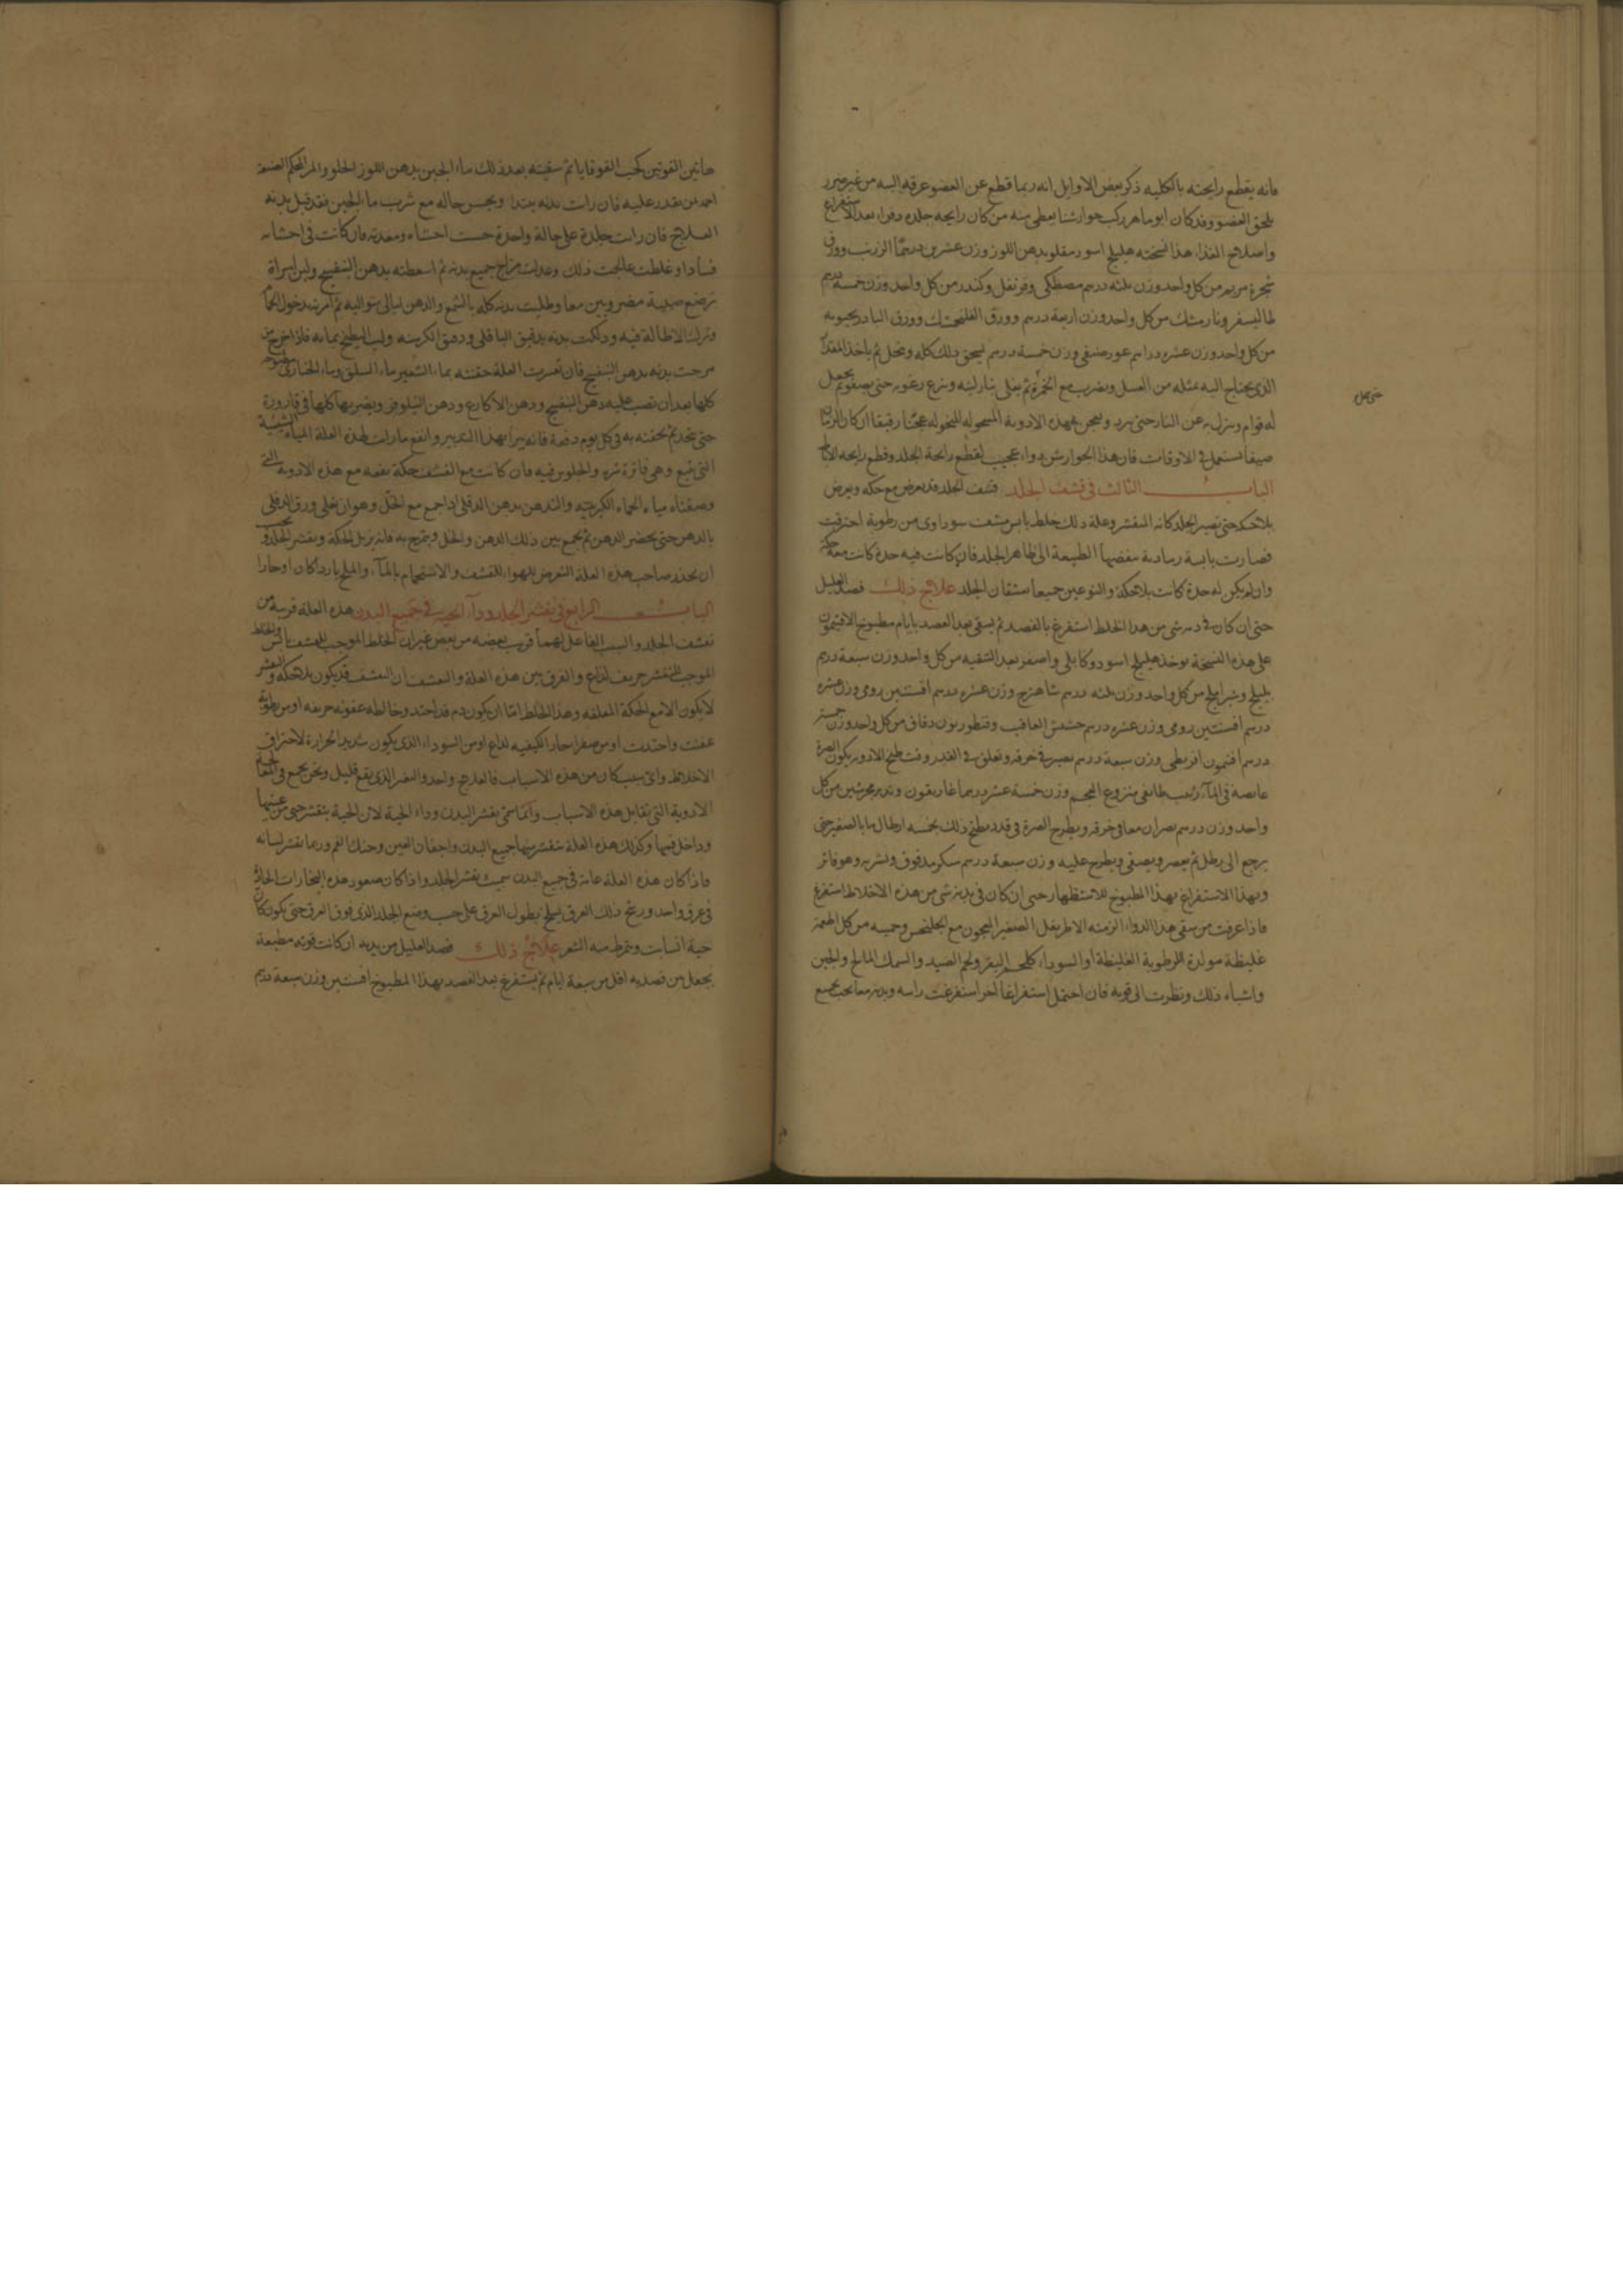 فانه يقطع رايحته بالكليه ذكر بعض الاوايل انه ربما قطع عن العضو عرقه البته من غير ضرر
يلحق العضو وقد كان ابو ماهر يركب جوارشنا يعطى منه من كان رايحه جلده دفرا، بعد الاستفراغ
واصلاح الغذا، هذا نسخته هليلج اسود مقلو بدهن اللوز وزن عشرين درهما الزرنب وورق
شجرة مريم من كل واحد وزن ثلثه درهم مصطكى وقرنفل وكندر من كل واحد وزن خمسة درهم
طاليسفر ونارمشك من كل واحد وزن اربعة درهم وورق الفلنجمشك وورق البادرنجبويه
من كل واحد وزن عشره دراهم عود صنفى وزن خمسة درهم يسحق ذلك كله وينخل ثم ياخذ المقدار
الذى يحتاج اليه بمثله من العسل ويضرب مع الخمر ثم يغلى بنار لينه وينزع رغوته حتى يصفو ثم يجعل
حتى يحمل
له قوام وينزل به عن النار حتى يبرد ويعجن بهذه الادوية المسحوله المنخوله عجنا رقيقا ان كان الزمان
صيفا يستعمل فى الاوقات فان هذا الجوارش دواء عجيب لقطع رائحة الجلد وقطع رايحه الاباط
الباب الثالث فى قشف الجلد قشف الجلد قد يعرض مع حكه ويعرض
بلا حكه حتى يصير الجلد كانه المتقشر وعلة ذلك خلط يابس متشف سوداوى من رطوبة احترقت
فصارت يابسة رمادية تنفضها الطبيعة الى ظاهر الجلد فان كانت فيه حدة كانت معه حكة
وان لم يكن له حدة كانت بلا حكة والنوعين جميعا يشققان الجلد علاج ذلك فصد العليل
حتى ان كان فى دمه شى من هذا الخلط استفرغ بالفصد ثم يسقى بعد الفصد بايام مطبوخ الافتيمون
على هذه النسخة يوخذ هليلج اسود وكابلى واصفر بعد التنقيه من كل واحد وزن سبعة درهم
بليلج وشير املج من كل واحد وزن ثلثه درهم شاهترج وزن عشره درهم افسنتين رومى وزن عشره
درهم افسنتين رومى وزن عشره درهم حشيش الغافت وقنطوريون دقاق من كل واحد وزن خمسة
درهم افتيمون اقريطى وزن سبعة درهم يصير فى خرقه وتعلق فى القدر وقت طبخ الادويه يكون الصرة
غايصة فى الماء زبيب طايفى منزوع العجم وزن خمسة عشر درهما غاريقون وتربد مجرشين من كل
واحد وزن درهم يصران معا فى خرقه ويطرح الصرة فى قدر يطبخ ذلك بخمسه ارطال ما بالصغير حتى
يرجع الى رطل ثم يعصر ويصفى ويطرح عليه وزن سبعة درهم سكر مدقوق وتشربه وهو فاتر
وبهذا الاستفراغ بهذا المطبوخ للاستظهار حتى ان كان فى بدنه شى من هذه الاخلاط استفرغ
فاذا عرفت من سقى هذا الدواء الزمته الاطريفل الصغير المعجون مع الجلنجبين وحميه من كل اطعمة
غليظة مولدة للرطوبة الغليظة او السوداء كلحم البقر ولحم الصيد والسمك المالح والجبن
واشباه ذلك ونظرت الى قوته فان احتمل استفراغا اخر استفرغت راسه وبدنه معا بحب يجمع
هاتين القوتين كحب القوقايا ثم سقيته بعد ذلك ماء الجبن بدهن اللوز الحلو والمر المحكم الصنعة
احمد من يقدر عليه فان رات بدنه يبتدا ويحسن حاله مع شرب ما الجبن فقد قبل بدنه
العلاج فان رات جلدة على حالة واحدة حسست احشاه ومعدته فان كانت فى احشايه
فسادا وغلظت عالجت ذلك وعدلت مزاج جميع بدنه ثم اسعطته بدهن البنفسج ولبن امراة
ترضع صبية مضروبين معا وطليت بدنه كله بالشمع والدهن ليالى متواليه ثم امرته بدخول الحمام
وترك الاطالة فيه ودلكت بدنه بدقيق الباقلى ودقيق الكرسنه ولب البطيخ بمائه فاذا خرج
مرخت بدنه بدهن البنفسج فان تعسرت العلة حقنته بماء الشعير ماء السلق وماء الخبازى مطبوخه
كلها بعد ان تصب عليه دهن البنفسج ودهن الاكارع ودهن النيلوفر ويضربها كلها فى قارورة
حتى يتحد ثم يحقنه به فى كل يوم دفعة فانه يبرا بهذا التدبير وانفع ما رات لهذه العلة المياه الشبية
التى تنبع وهى فاترة شربه والجلوس فيه فان كانت مع القشف حكة نفعه مع هذه الادوية التى
وصفناه مياه الحماء الكبريتيه والتدهن بدهن الدفلى اذا جمع مع الخل وهو ان يغلى ورق الدفلى
بالدهن حتى يخضر الدهن ثم يجمع بين ذلك الدهن والخل ويتمرخ به فانه يزيل الحكة وتقشر الجلد ويجب
ان يحذر صاحب هذه العلة التعرض للهواء للقشف والاستحمام بالماء والملح باردا كان او حارا
الباب الرابع فى تقشر الجلد وداء الحية فى جميع البدن هذه العلة قريبة من
تقشف الجلد والسبب الفاعل لهما قريب بعضه من بعض غير ان الخلط الموجب للقشف يابس والخلط
الموجب للتقشر حريف لذاع والفرق بين هذه العلة والتقشف ان التقشف قد يكون بلا حكه والتقشر
لا يكون الا مع الحكة المقلقه وهذا الخلط اما ان يكون دم قد احتد وخالطه عفونه حريفه او من رطوبة
عفنت واحتدت او من صفرا حار الكيفيه لذاع او من السوداء الذى يكون شديد الحرارة لاحتراق
الاخلاط واى سبب كان من هذه الاسباب فالعلاج واحد والتغير الذى يقع قليل ونحن نجمع فى العلاج
الادوية التى تقابل هذه الاسباب وانما سمى تقشر البدن وداء الحية لان الحية يتقشر حتى عينيها
وداخل فمها وكذلك هذه العلة يتقشر منها جميع البدن واجفان العين وحنك الفم وربما تقشر لسانه
فاذا كان هذه العلة عامة فى جميع البدن سميت تقشر الجلد واذا كان صعود هذه البخارات الحارة
فى عرق واحد ورشح ذلك العرق ينسلخ بطول العرق على حسب وضع الجلد الذى فوق العرق حتى يكون كان
حية انسابت وتمرط منه الشعر علاج ذلك فصد العليل من يديه ان كانت قوته مطيعة
يجعل من فصديه اقل من سبعة ايام ثم يستفرغ بعد الفصد بهذا المطبوخ افسنتين وزن سبعة درهم